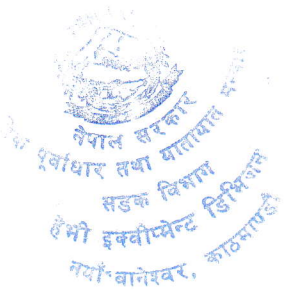 नेपाल सरकार
पूर्वाधार तथा यातायात
सडक विभाग
हेभी इक्वीपमेन्ट डिभिजन
नयाँ-बानेश्वर, काठमाण्डौ